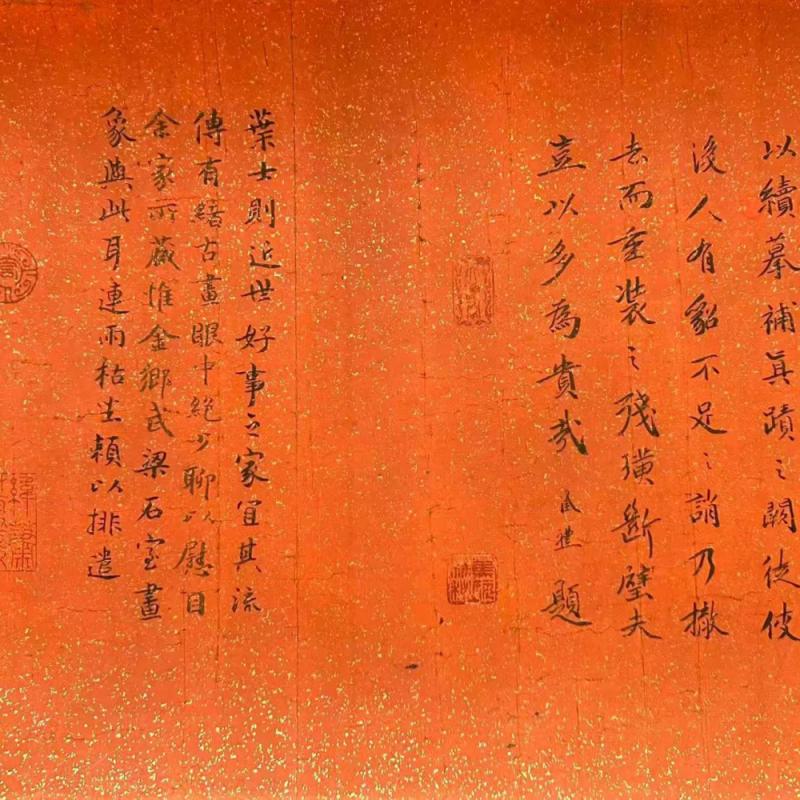 以續摹補真蹟之闕从使
没人有貂不足之誚乃撤
去而重裝之殘璜斷璧夫
豈以多為貴哉 題
葉士則近世好事之家宜其流
傳有緒古畫眼中絕少聊以慰目
余家所藏惟金鄉武梁石室畫
象與此耳連雨枯坐賴以排遣